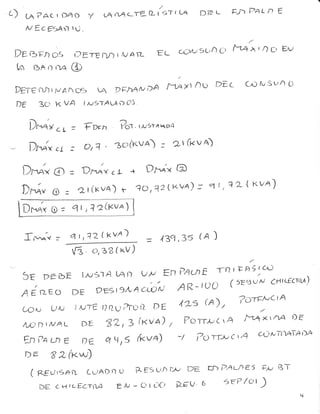 C) CAPACIDAD Y CARACTERISTICA DEL EMPALME
NECESARIO.
DEBEMOS DETERMINAR EL CONSUMO MÁXIMO EN
LA BARRA ④
DETERMINAMOS LA DEMANDA MÁXIMA DEL CONSUMO
DE 30 KVA INSTALADOS.
DMÁX C1 = FDEM · POT. INSTALADA
DMÁX C1 = 0,7 · 30(KVA) = 21(KVA)
DMÁX ④ = DMÁX C1 + DMÁX ②
DMÁX ④ = 21(KVA) + 70,72(KVA) = 91,72(KVA)
DMÁX ④ = 91,72(KVA)
IMÁX = 91,72(KVA) / √3 · 0,38(KV) = 139,35 (A)
SE DEBE INSTALAR UN EMPALME TRIFÁSICO
AÉREO DE DESIGNACIÓN AR-100 (SEGÚN CHILECTRA)
CON UN INTERRUPTOR DE 125 (A), POTENCIA
NOMINAL DE 82,3 (KVA), POTENCIA MÁXIMA DE
EMPALME DE 94,5 (KVA) Y POTENCIA CONTRATADA
DE 82(KW)
(REVISAR CUADRO RESUMEN DE EMPALMES EN BT
DE CHILECTRA EN-0100 REV. 6 SEP/01)